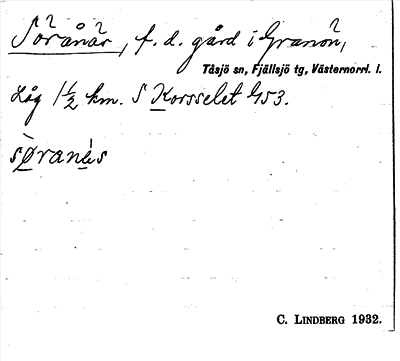 Söränäs, f. d. gård i Granön,
Tåsjö sn, Fjällsjö tg, Västernorrl. l.
Låg 1½ km. S Korsselet 4/53.
C. LINDBERG 1932.